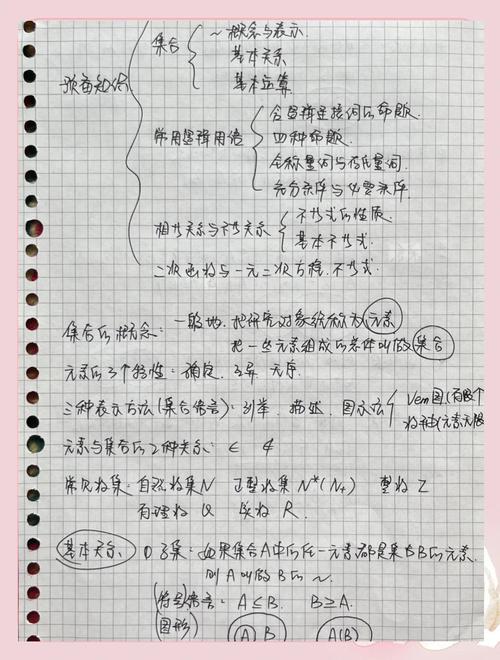 集合 ~概念与表示.
基本关系
基本运算.
预备知识
常用逻辑用语 含逻辑连接词的命题.
四种命题.
全称量词与存在量词.
充分条件与必要条件.
相等关系与不等关系 不等式的性质.
基本不等式.
二次函数与一元二次方程.不等式.
集合的概念: 一般地.把研究对象统称为元素
把一些元素组成的总体叫做集合
元素的3个特性: 确定. 互异 无序.
三种表示方法(集合语言): 列举. 描述. 图示法 Venn图(有限个
数轴(元素无限
元素与集合的2种关系: ∈ ∉
常见数集: 自然数集N 正整数集 N*(N₊) 整数 Z
有理数 Q 实数 R.
基本关系. ①子集: 如果集合A中的任一元素都是集合B的元素.
则A叫做B的~.
(符号)语言: A⊆B. B⊇A.
(图形) A B A(B)